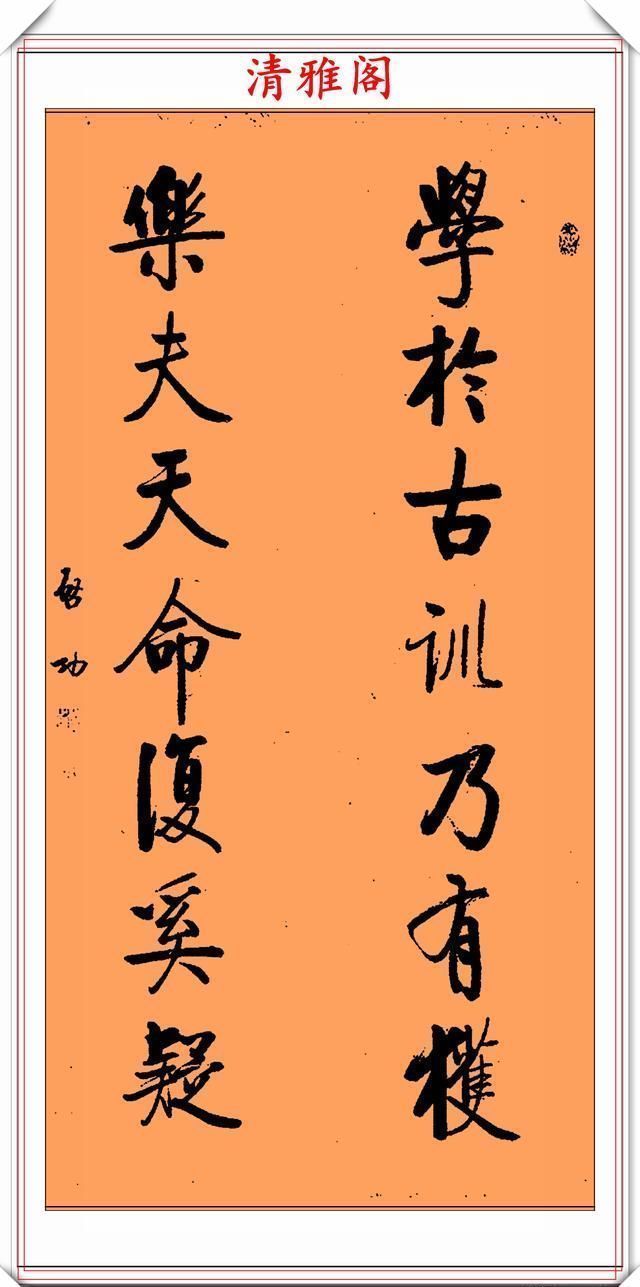 清雅阁
學於古訓乃有穫
樂夫天命復奚疑
啓功